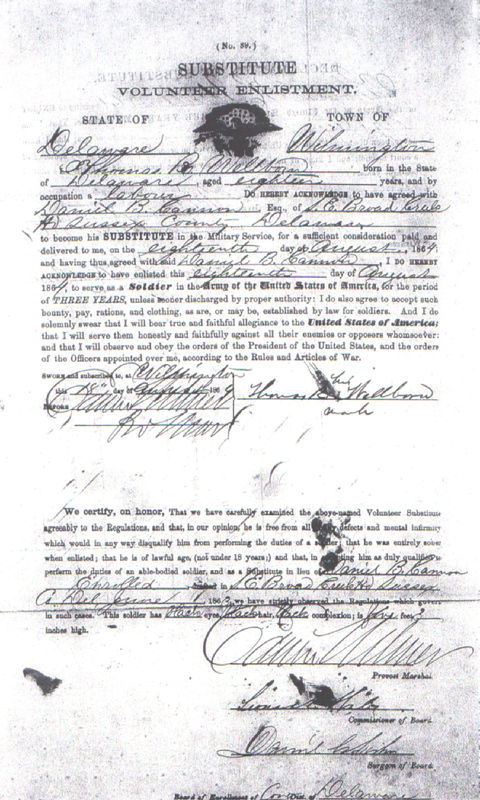 (No. 39.)
SUBSTITUTE
VOLUNTEER ENLISTMENT.
STATE OF TOWN OF
Delaware Wilmington
Thomas B. Wellborn born in the State
of Delaware, aged eighteen years, and by
occupation a labour Do HEREBY ACKNOWLEDGE to have agreed with
Daniel B. Cannon Esq., of N. E. Broad Creek
Hd Sussex County Delaware
to become his SUBSTITUTE in the Military Service, for a sufficient consideration paid and
delivered to me, on the eighteenth day of August, 1864
and having thus agreed with said Daniel B. Cannon, I DO HEREBY
ACKNOWLEDGE to have enlisted this eighteenth day of August
1864, to serve as a Soldier in the Army of the United States of America, for the period
of THREE YEARS, unless sooner discharged by proper authority: I do also agree to accept such
bounty, pay, rations, and clothing, as are, or may be, established by law for soldiers. And I do
solemnly swear that I will bear true and faithful allegiance to the United States of America;
that I will serve them honestly and faithfully against all their enemies or opposers whomsoever:
and that I will observe and obey the orders of the President of the United States, and the orders
of the Officers appointed over me, according to the Rules and Articles of War.
SWORN and subscribed to, at Wilmington
this 18th day of August 1864
BEFORE
his
Thomas B. Wellborn
mark
We certify, on honor, That we have carefully examined the above-named Volunteer Substitute
agreeably to the Regulations, and that, in our opinion, he is free from all defects and mental infirmity
which would in any way disqualify him from performing the duties of a soldier; that he was entirely sober
when enlisted; that he is of lawful age, (not under 18 years;) and that, in accepting him as duly qualified to
perform the duties of an able-bodied soldier, and as a Substitute in lieu of Daniel B. Cannon
Enrolled in N. E. Broad Creek Hd Sussex
Co Del June 1 1863, we have strictly observed the Regulations which govern
in such cases. This soldier has Black eyes, Black hair, Black complexion; is five feet 3
inches high.
Provost Marshal
Commissioner of Board.
Surgeon of Board.
Board of Enrollment of Delaware